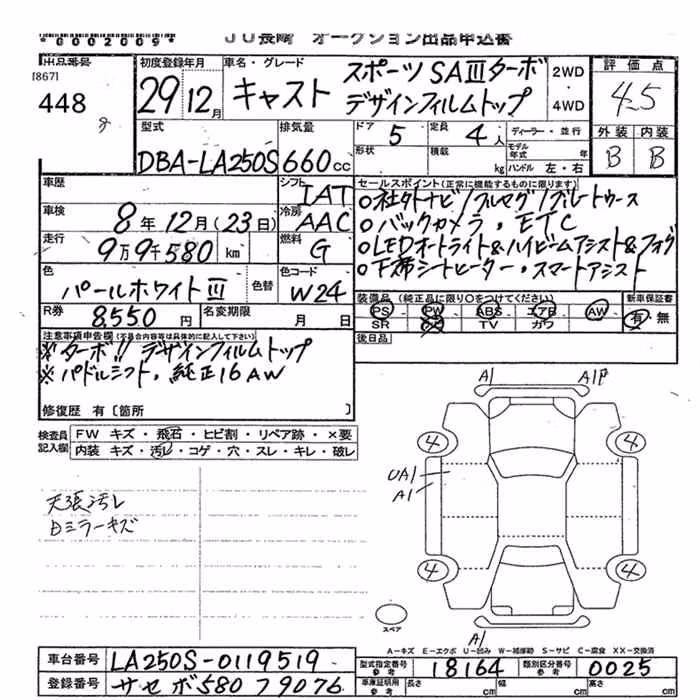 *0002009*
JU長崎 オークション出品申込書
出品番号
[867]
448
初度登録年月
29年12月
車名・グレード
キャスト スポーツSAⅢターボ
デザインフィルムトップ
2WD
・
4WD
評価点
4.5
外装 内装
B B
型式
DBA-LA250S
排気量
660cc
ドア 5
定員 4人
形状
積載 kg
ディーラー・並行
モデル年式 年
ハンドル 左・右
車歴
シフト IAT
車検
8年12月(23日)
冷房 AAC
走行
9万9千580 km
燃料 G
色
パールホワイトⅢ
色替
色コード
W24
R券
8,550円
名変期限 月 日
セールスポイント(正常に機能するものに限ります)
○社外ナビ/フルセグ/ブルートゥース
○バックカメラ・ETC
○LEDオートライト&ハイビームアシスト&フォグ
○下席シートヒーター・スマートアシスト
装備品(純正品に限り○をつけてください)
新車保証書
PS PW ABS エアB AW
有・無
SR TV カワ
後日品
注意事項申告欄(不具合内容等は具体的に記入して下さい)
※ターボ!! デザインフィルムトップ
※パドルシフト、純正16AW
修復歴 有〔箇所 〕
検査員記入欄
FW キズ・飛石・ヒビ割・リペア跡・×要
内装 キズ・汚レ・コゲ・穴・スレ・キレ・破レ
天張汚レ
Bミラーキズ
A1 A1P
4 4
UA1
A1
4 4
スペア
A1
A-キズ E-エクボ U-凹み W-補修跡 S-サビ C-腐食 XX-交換済
車台番号 LA250S-0119519
型式指定番号 参考 18164
類別区分番号 参考 0025
登録番号 サセボ580 ヲ9076
車庫証明用 参考 長さ cm 幅 cm 高さ cm